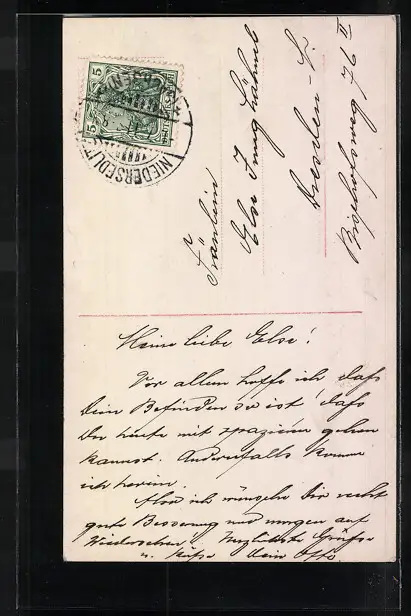 5
5
NIEDERSEDLITZ
Fräulein
Else Junghähnel
Dresden - F.
Bischofsweg 76 II
Meine liebe Else!
Vor allem hoffe ich, dass
Dein Befinden so ist, dass
Du heute mit spazieren gehen
kannst. Andernfalls komme
ich herein.
Also ich wünsche Dir recht
gute Besserung und morgen auf
Wiedersehen. Herzlichste Grüsse
u. Küsse Dein Otto.